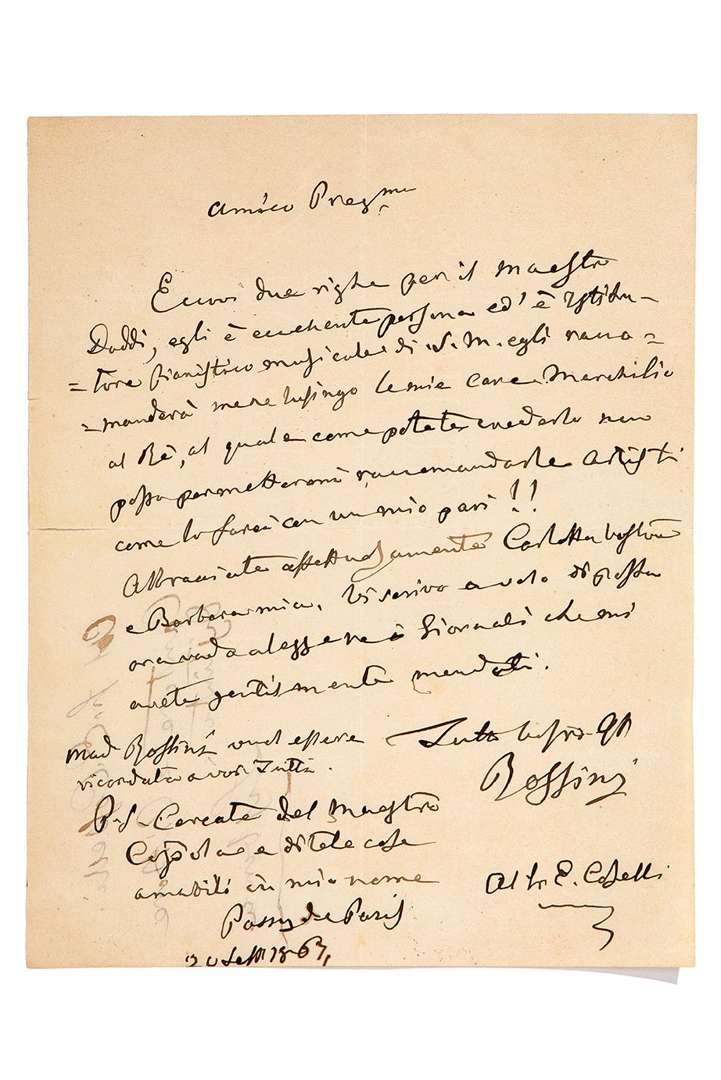 Amico Preg.mo
Eccovi due righe per il Maestro
Daddi, egli è eccellente persona ed' è Istitu-
=tore pianistico musicale di S. M. egli racco=
=manderà me ne lusingo le mie care Marchisio
al Rè, al quale come potete crederlo non
posso permettermi raccomandarle Artisti
come lo farei con un mio pari!!
Abbracciate affettuosamente Carlotta vostra
e Barbara mia. Vi scrivo a volo di
ora vado a leggere i Giornali che mi
avete gentilmente mandati.
Mad Rossini vuol essere
ricordata a voi Tutti.
Tutto vostro
Rossini
P.S. Cercate del Maestro
Coppola e ditele cose
amabili in mio nome
Al Sr. E. Caselli
Passy de Paris
20 Sett 1863,